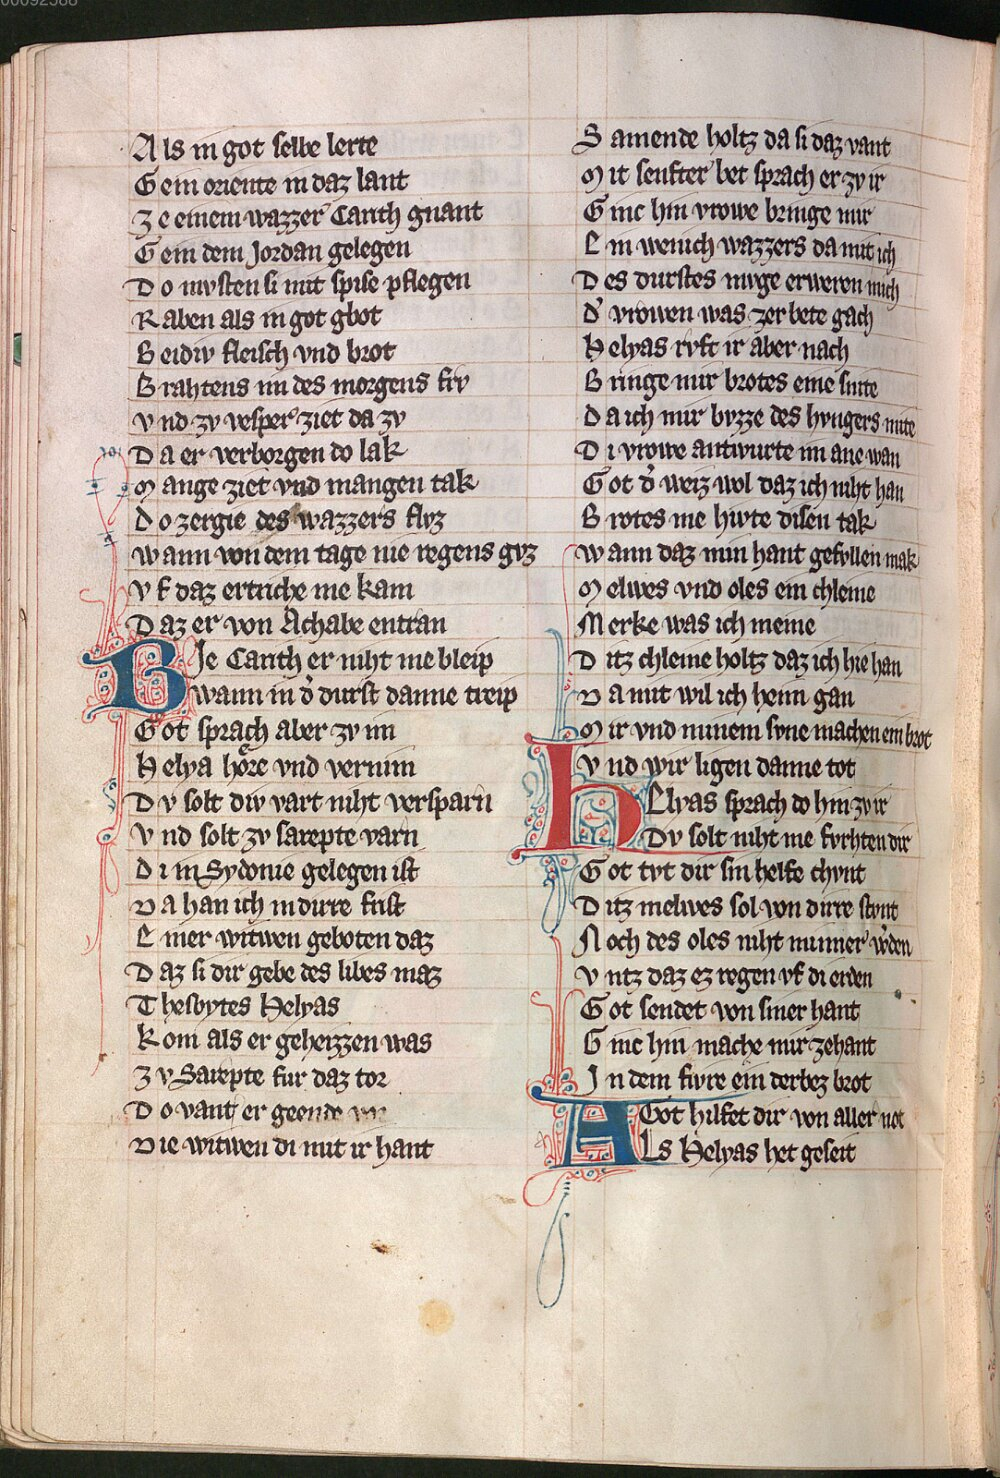 Als in got selbe lerte
Gein oriente in daz lant
Ze einem wazzer Carith gnant
Gein dem Jordan gelegen
Do mvsten si mit spise pflegen
Raben als in got gbot
Beidiv fleisch vnd brot
Brahtens im des morgens frv
Vnd zv vesper ziet da zv
Da er verborgen do lak
Mange ziet vnd mangen tak
Do zergie des wazzers flvz
Wann von dem tage nie regens gvz
Vf daz ertriche nie kam
Daz er von Achabe entran
BJe Carith er niht me bleip
Wann in d' durst danne treip
Got sprach aber zv im
Helya hoͤre vnd vernim
Dv solt div vart niht versparn
Vnd solt zv sarepte varn
Di in Sydonie gelegen ist
Da han ich in dirre frist
Einer witwen geboten daz
Daz si dir gebe des libes maz
Thesbytes Helyas
Kom als er geheizzen was
Zv Sarepte fur daz tor
Do vant er geende
Die witwen di mit ir hant
Samende holtz da si daz vant
Mit senfter bet sprach er zv ir
Ginc hin vrowe bringe mir
Ein wenich wazzers da mit ich
Des durstes mvge erweren mich
D' vrowen was zer bete gach
Helyas rvft ir aber nach
Bringe mir brotes eine snite
Da ich mir bvzze des hvngers mite
Di vrowe antwurte im ane wan
Got d' weiz wol daz ich niht han
Brotes me hivte disen tak
Wann daz min hant gefvllen mak
Melwes vnd oles ein chleine
Merke was ich meine
Ditz chleine holtz daz ich hie han
Da mit wil ich heim gan
Mir vnd minem svne machen ein brot
Vnd wir ligen danne tot
HElyas sprach do hin zv ir
Dv solt niht me fvrhten dir
Got tvt dir sin helfe chvnt
Ditz melwes sol von dirre stvnt
Noch des oles niht minner w'den
Vntz daz ez regen vf di erden
Got sendet von siner hant
Ginc hin mache mir zehant
In dem fivre ein derbez brot
Got hilfet dir von aller not
ALs Helyas het geseit